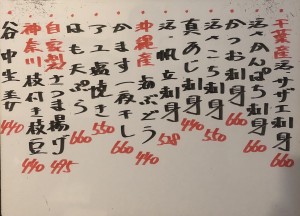 千葉産 活サザエ刺身 660
活かんぱち刺身 660
かつお刺身 660
活さごち刺身 550
真あじ刺身 440
活・帆立刺身 528
沖縄産 海ぶどう 440
かます一夜干し 660
アユ塩焼き 550
はも天ぷら 660
自家製さつま揚げ 495
神奈川 枝付き枝豆 440
谷中生姜 440